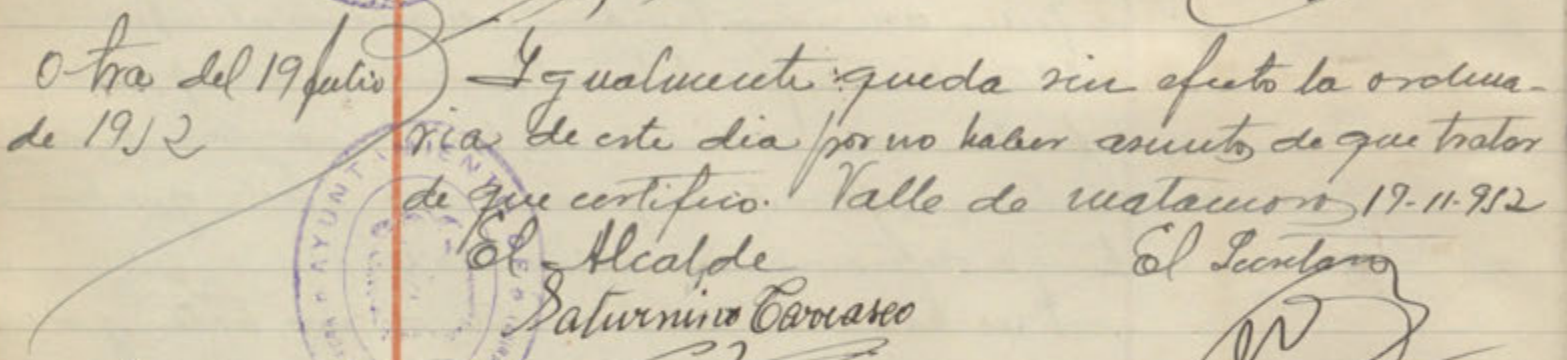 Otra del 19 Julio
de 1952
Igualmente queda sin efecto la ordina-
ria de este dia por no haber asuntos de que tratar
de que certifico. Valle de matamoros 19-11-952
El Alcalde
El Secretario
Saturnino Carrasco
AYUNTAMIENTO DE